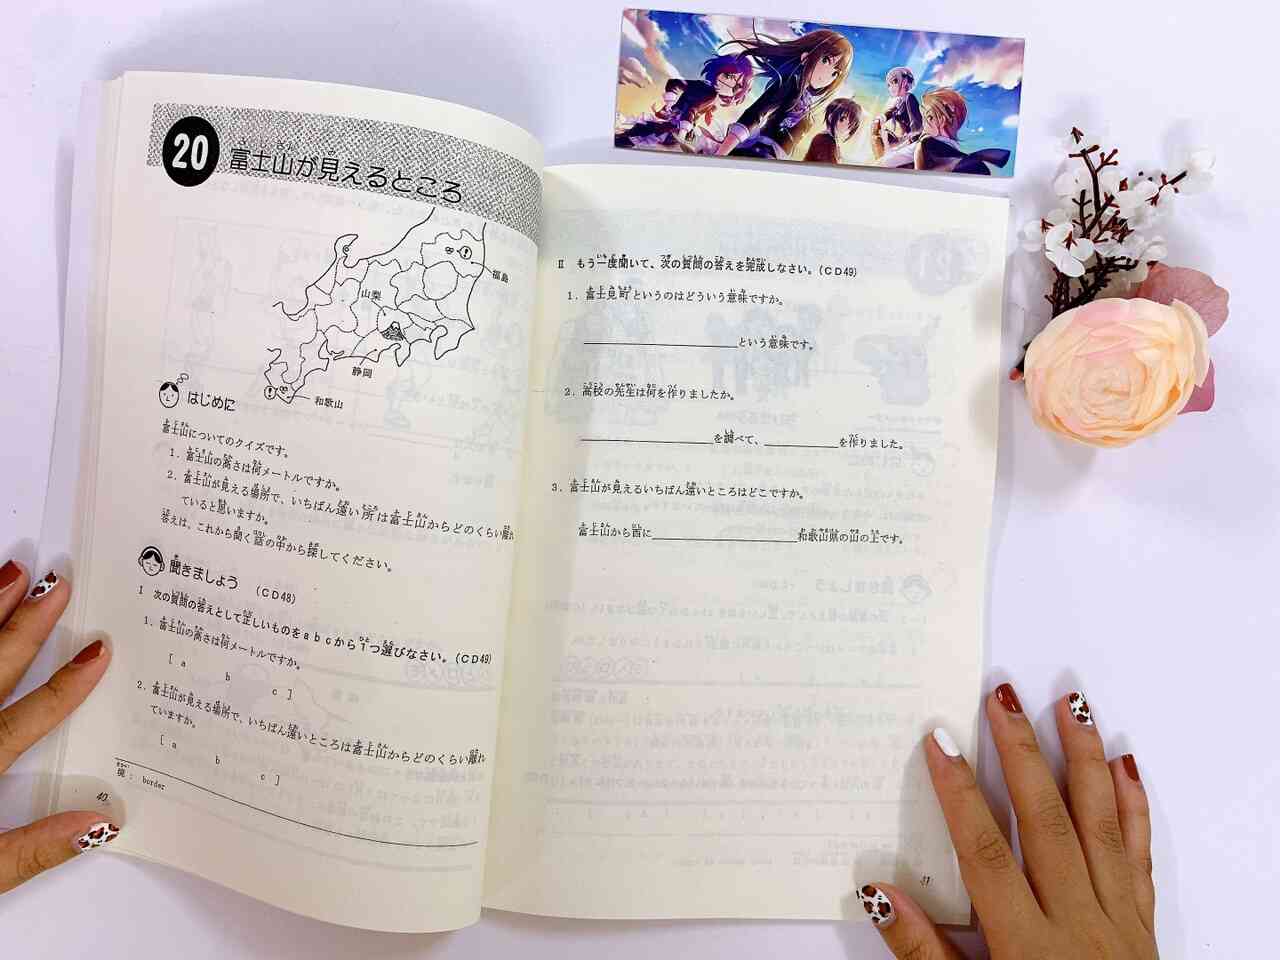 20 富士山が見えるところ
福島
山梨
静岡
和歌山
はじめに
富士山についてのクイズです。
1．富士山の高さは何メートルですか。
2．富士山が見える場所で、いちばん遠い所は富士山からどのくらい離れ
ていると思いますか。
答えは、これから聞く話の中から探してください。
聞きましょう （CD48）
I 次の質問の答えとして正しいものをabcから1つ選びなさい。（CD49）
1．富士山の高さは何メートルですか。
[ a b c ]
2．富士山が見える場所で、いちばん遠いところは富士山からどのくらい離れ
ていますか。
[ a b c ]
境： border
40
II もう一度聞いて、次の質問の答えを完成しなさい。（CD49）
1．富士見町というのはどういう意味ですか。
という意味です。
2．高校の先生は何を作りましたか。
を調べて、 を作りました。
3．富士山が見えるいちばん遠いところはどこですか。
富士山から西に 和歌山県の山の上です。